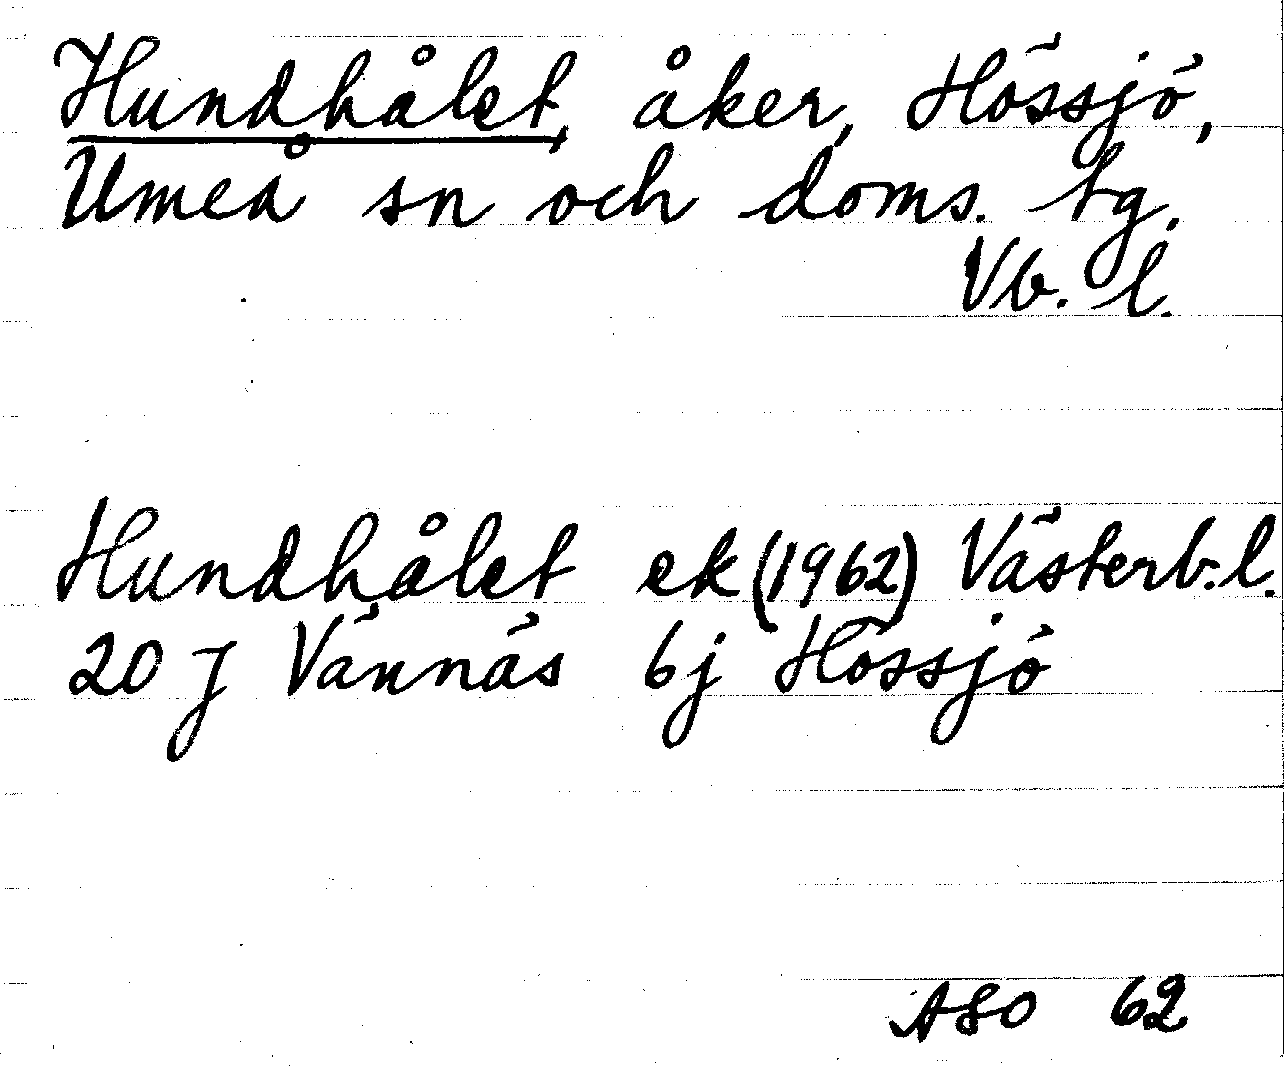 Hundhålet, åker, Hössjö,
Umeå sn och doms. tg.
Vb. l.
Hundhålet ek (1962) Västerb. l.
20 J Vännäs 6j Hössjö
ASO 62